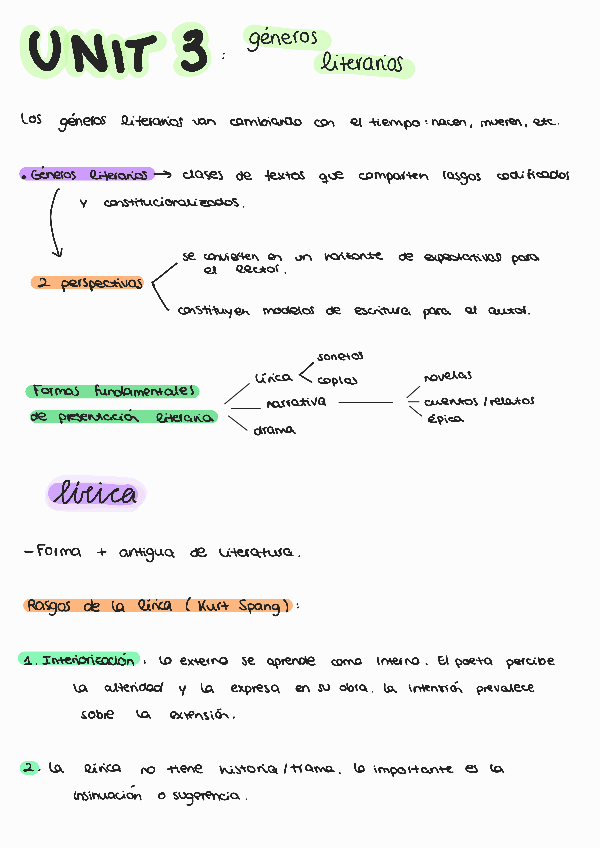 UNIT 3 : géneros
literarios
Los géneros literarios van cambiando con el tiempo: nacen, mueren, etc.
• Géneros literarios → clases de textos que comparten rasgos codificados
y constitucionalizados.
2 perspectivas
se convierten en un horizonte de expectativas para
el lector.
constituyen modelos de escritura para el autor.
Formas fundamentales
de presentación literaria
lírica
sonetos
coplas
narrativa
novelas
cuentos / relatos
épica
drama
lírica
- Forma + antigua de literatura.
Rasgos de la lírica ( Kurt Spang):
1. Interiorización. lo externo se aprende como interno. El poeta percibe
la alteridad y la expresa en su obra. la intención prevalece
sobre la extensión.
2. La lírica no tiene historia / trama. lo importante es la
insinuación o sugerencia.